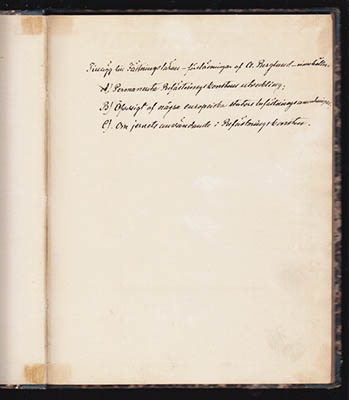 Tillägg till Fältningsläran – föreläsningar af A. Berglund – innehåller:
A) Permanenta Befästningskonstens utveckling;
B) Öfversigt af några europeiska staters befästningsanordningar
C). Om jernets användande i Befästningskonsten.